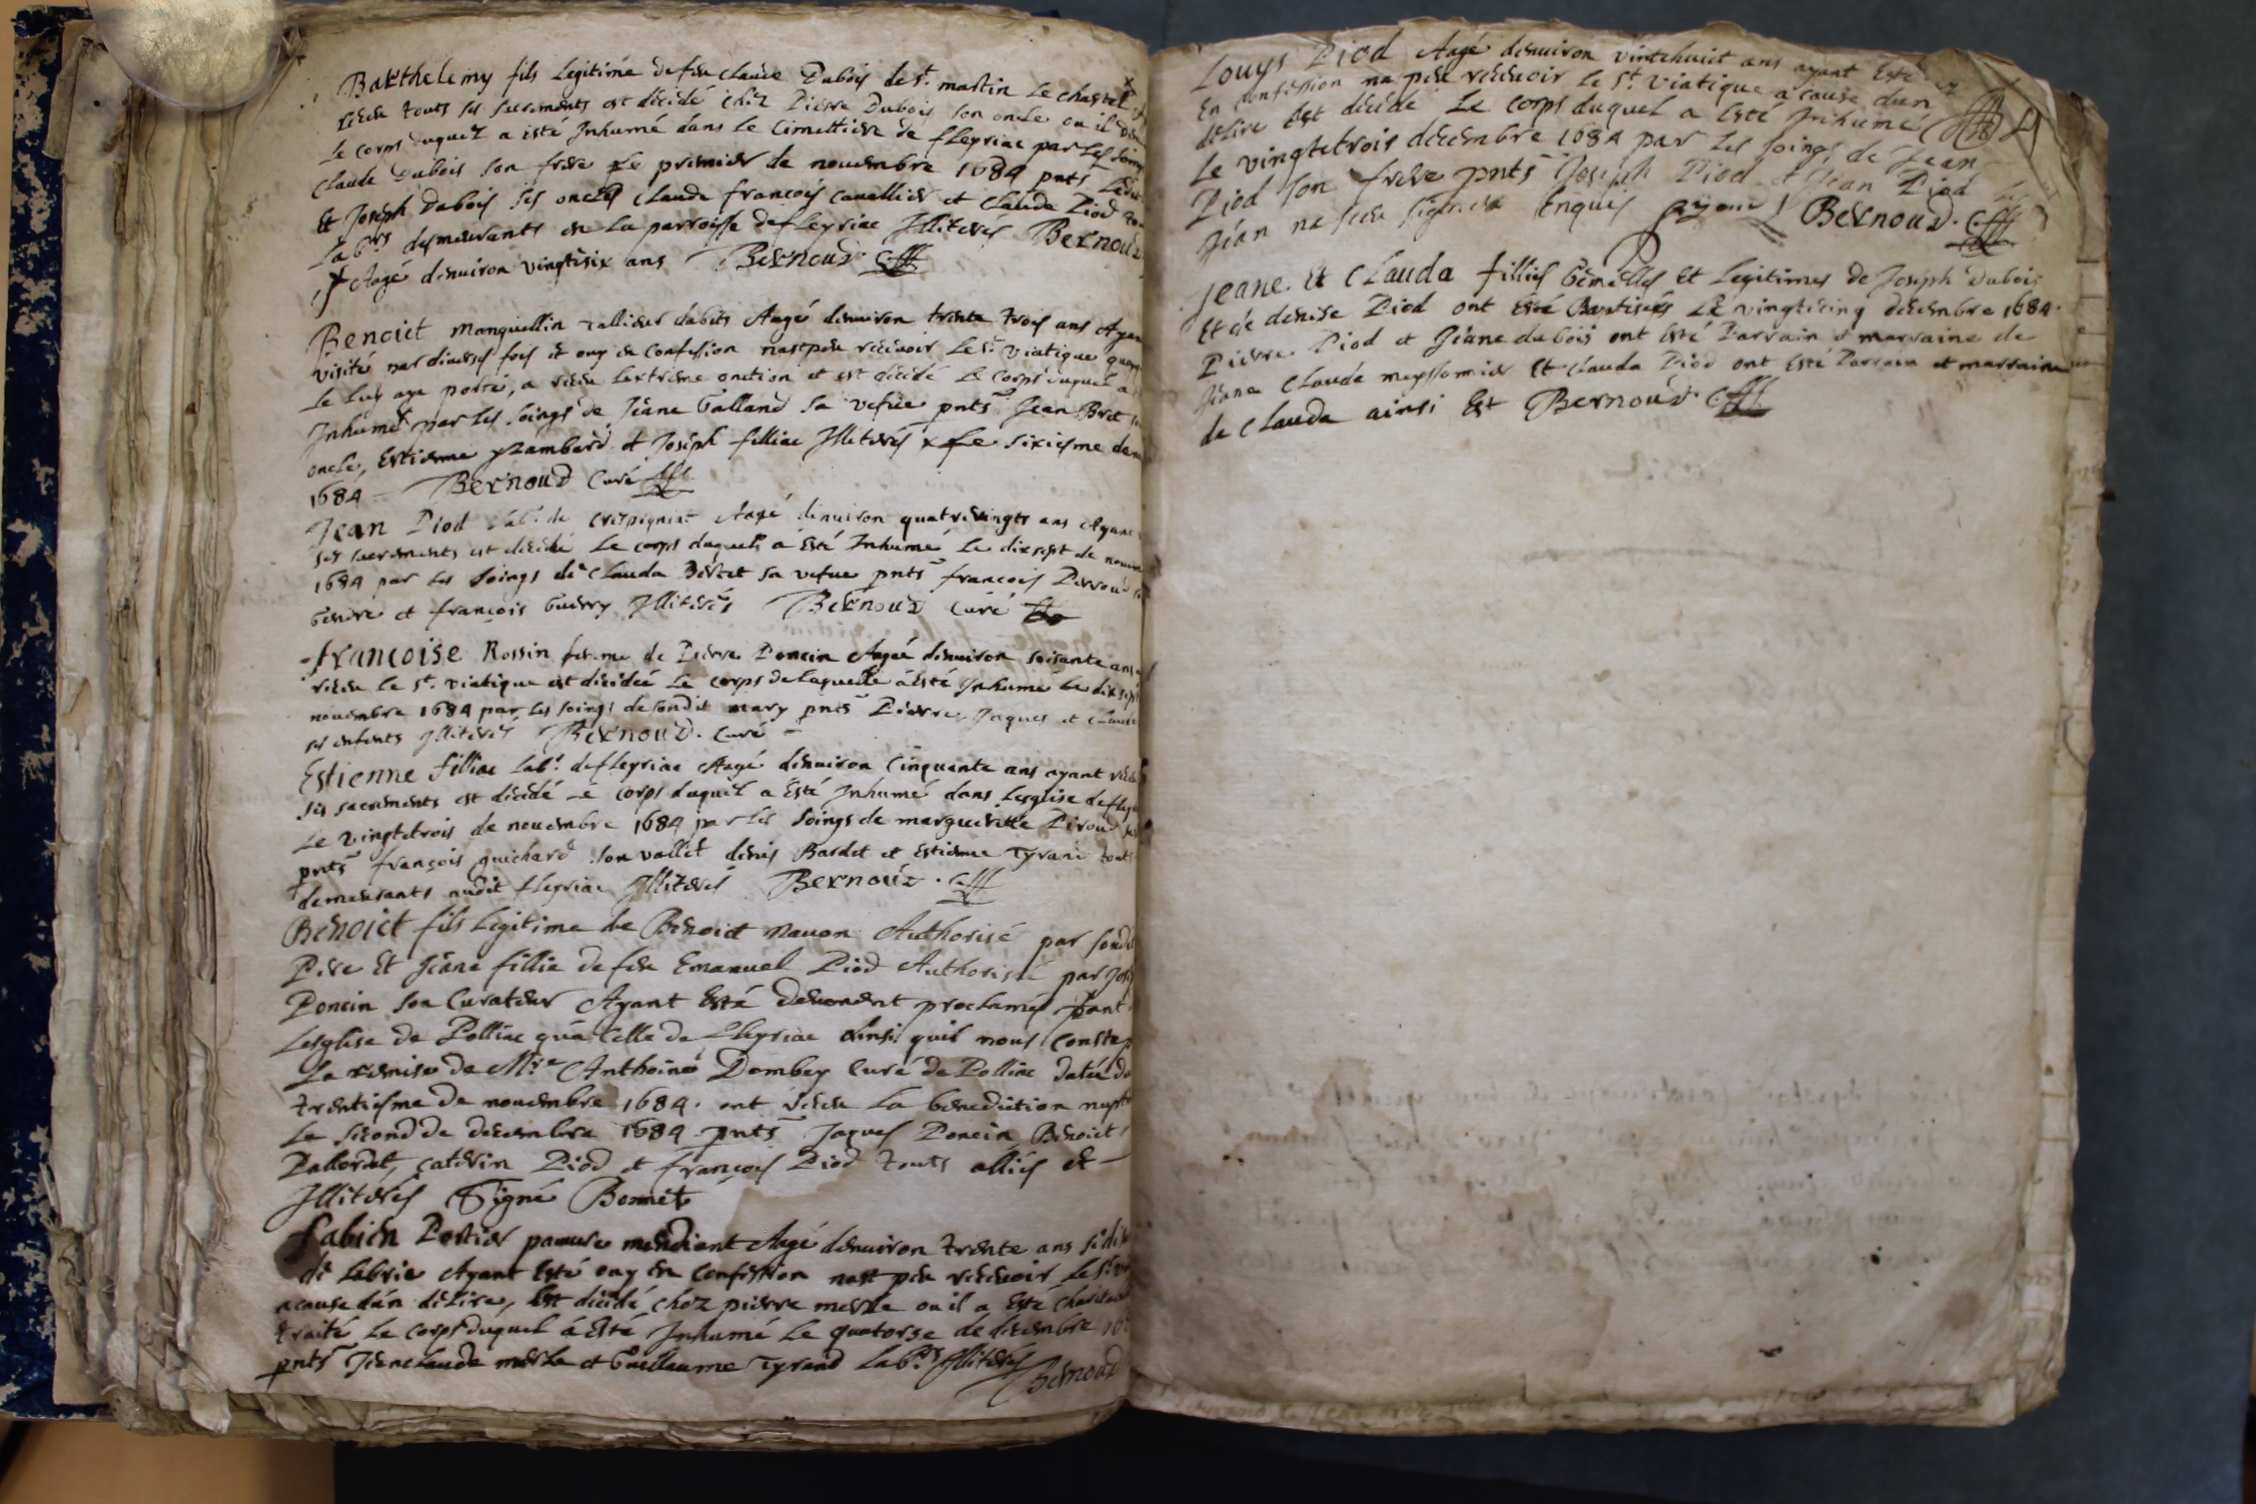 Barthelemy fils legitime de feu claude Dubois de st. martin le chastel
receu touts ses sacrements est décédé chez Pierre Dubois son oncle ou il
le corps duquel a esté Inhumé dans le Cimettiere de fleyriac par les soings
Claude Dubois son frere le premier de novembre 1684 pnts
Et Joseph Dubois ses oncles Claude françois Cavallier et Claude Piod
Labrs demeurants en la parroisse de fleyriac Illiterés Bernoud
Aagé denviron vingtsix ans Bernoud C.
Benoict Monquillin tallieur dabits Aagé denviron trente trois ans Ayant
visité par diverses fois et ouy en Confession nast peu recevoir le st. viatique
le luy aye porté, a receu lextreme onction et est décédé le corps duquel a
Inhumé par les soings de Jeane Galland sa vefue pnts Jean Bret
oncle, Estienne et Joseph filliac Illiterés x le sixiesme de
1684 Bernoud Curé
Jean Piod labr. de Aagé denviron quatrevingts ans Ayant
ses sacrements est décédé le corps duquel a esté Inhumé le dixsept de
1684 par les soings de Clauda sa vefue pnts françois Perroud
Gendre et françois Guerry Illiterés Bernoud Curé
françoise Rossin femme de Pierre Poncin Aagée denviron soisante ans
receu le st. viatique est décédée le corps de laquelle a esté Inhumé le
novembre 1684 par les soings de sondit mary pnts Pierre, Jaques et Claude
ses enfents Illiterés Bernoud. Curé
Estienne filliac labr. de fleyriac Aagé denviron Cinquante ans ayant
ses sacrements est décédé le corps duquel a esté Inhumé dans lesglise de
le vingtetrois de novembre 1684 par les soings de margueritte Piroud
pnts françois guichard son vallet denis Bardet et estienne Tyrand touts
demeurants audit fleyriac Illiterés Bernoud. C.
Benoict fils legitime de Benoict Mavon Authorisé par sondit
Pere Et Jeane fillie de feu Emanuel Piod Authorisée par
Poncin son Curateur Ayant Esté deuement proclamés tant
Lesglise de Polliac qua Celle de fleyriac Ainsi quil nous Conste
La remise de Mre. Anthoine Dombey Curé de Polliac datée du
trentiesme de novembre 1684. ont receu la benediction
le second de decembre 1684 pnts Jaques Poncin Benoict
Pallordet, Catherin Piod et françois Piod touts alliés et
Illiterés Signé Bonnet
Fabien Portier pauvre mendiant Aagé denviron trente ans
de labrie Ayant esté ouy en Confession nast peu recevoir le st.
a cause dun délire, Est décédé chez pierre merle ou il a esté
traité le corps duquel a Esté Inhumé le quatorze de decembre
pnts Jeanclaude merle et Guillaume Tyrand labrs Illiterés Bernoud
Louys Piod Aagé denviron vintehuict ans ayant Esté
En Confession na peu recevoir le st. viatique a cause dun
délire Est décédé le corps duquel a Esté Inhumé
le vingtetrois decembre 1684 par les soings de Jean
Piod son frere pnts Joseph Piod et Jean Piod
Jean na sceu signer Enquis Bernoud. C.
Jeane. et Clauda fillies Gemelles et legitimes de Joseph Dubois
Et de denise Piod ont esté Baptisées le vingticing decembre 1684.
Pierre Piod et Jeane dubois ont esté Parrain et marraine de
Jeane Claude et Clauda Piod ont esté Parrain et marraine
de Clauda ainsi Est Bernoud. C.